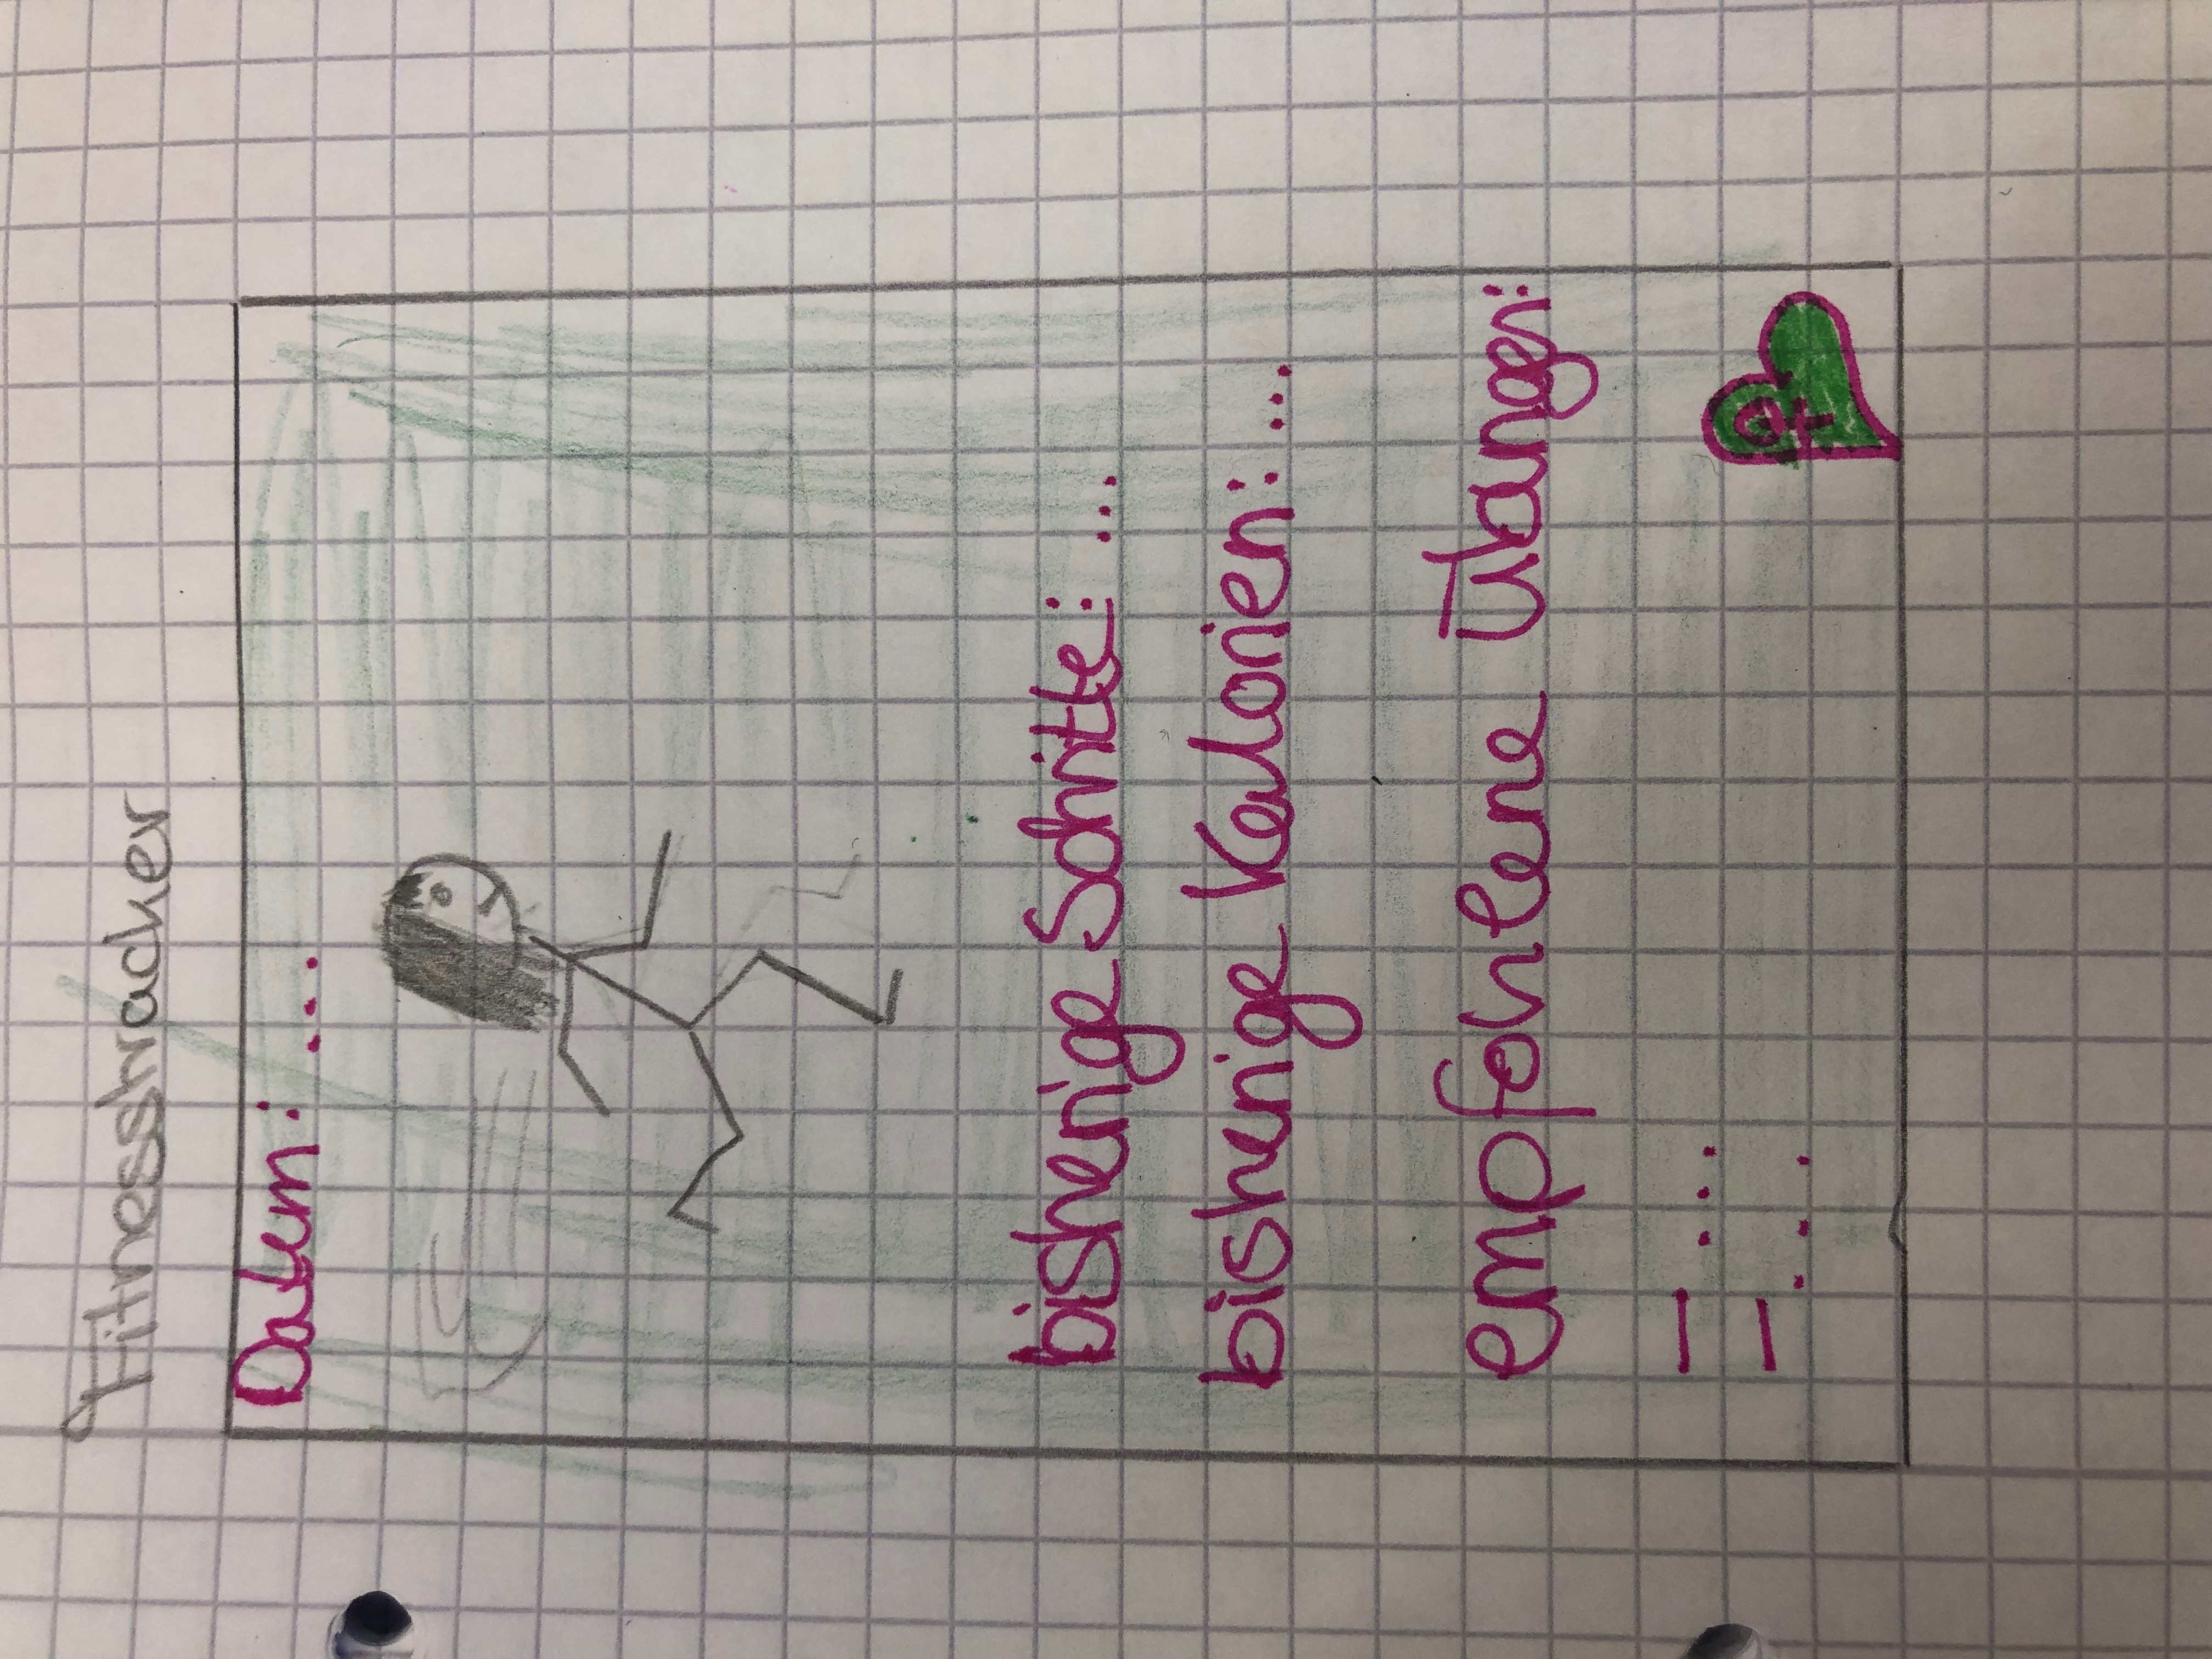 Fitnesstracker
Datum: ...
bisherige Schritte: ...
bisherige Kalorien: ...
empfohlene Übungen:
— ...
— ...